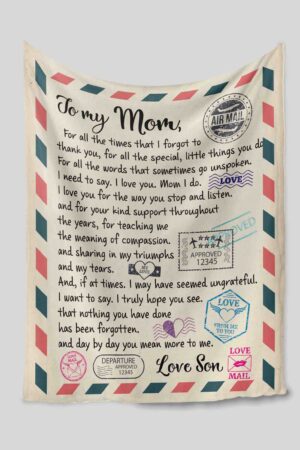 To my Mom,
AIR MAIL
For all the times that I forgot to
thank you, for all the special, little things you do
For all the words that sometimes go unspoken.
I need to say. I love you. Mom I do.
LOVE
I love you for the way you stop and listen.
and for your kind support throughout
the years, for teaching me
the meaning of compassion.
APPROVED
12345
and sharing in my triumphs
and my tears.
And, if at times. I may have seemed ungrateful.
I want to say. I truly hope you see.
that nothing you have done
LOVE
FROM ME
TO YOU
has been forgotten.
and day by day you mean more to me.
DEPARTURE
APPROVED
12345
Love Son
LOVE
MAIL